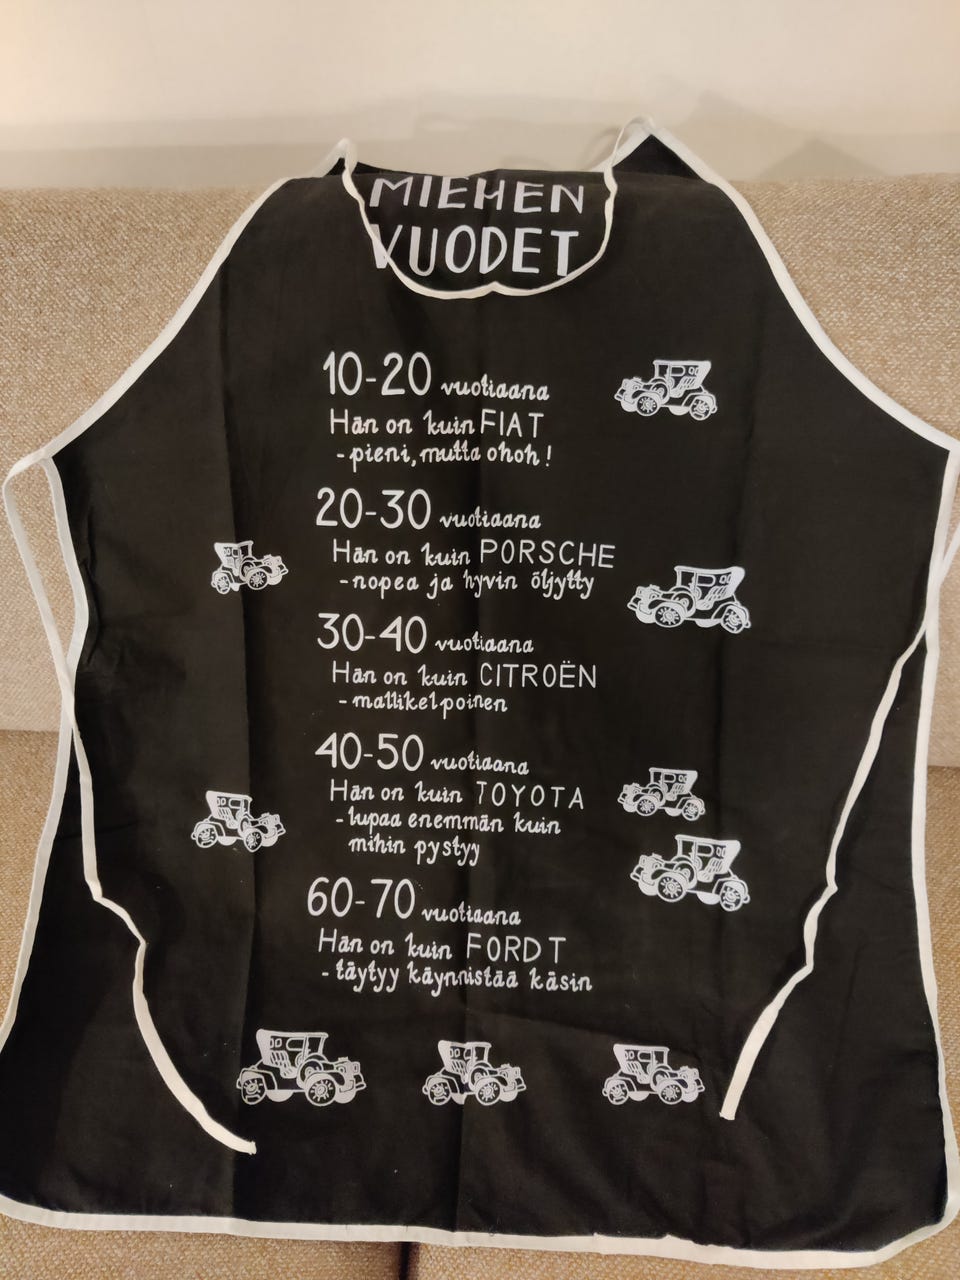 MIEHEN
VUODET
10-20 vuotiaana
Hän on kuin FIAT
-pieni, mutta ohoh!
20-30 vuotiaana
Hän on kuin PORSCHE
-nopea ja hyvin öljytty
30-40 vuotiaana
Hän on kuin CITROËN
-mallikelpoinen
40-50 vuotiaana
Hän on kuin TOYOTA
-lupaa enemmän kuin
mihin pystyy
60-70 vuotiaana
Hän on kuin FORD T
-täytyy käynnistää käsin